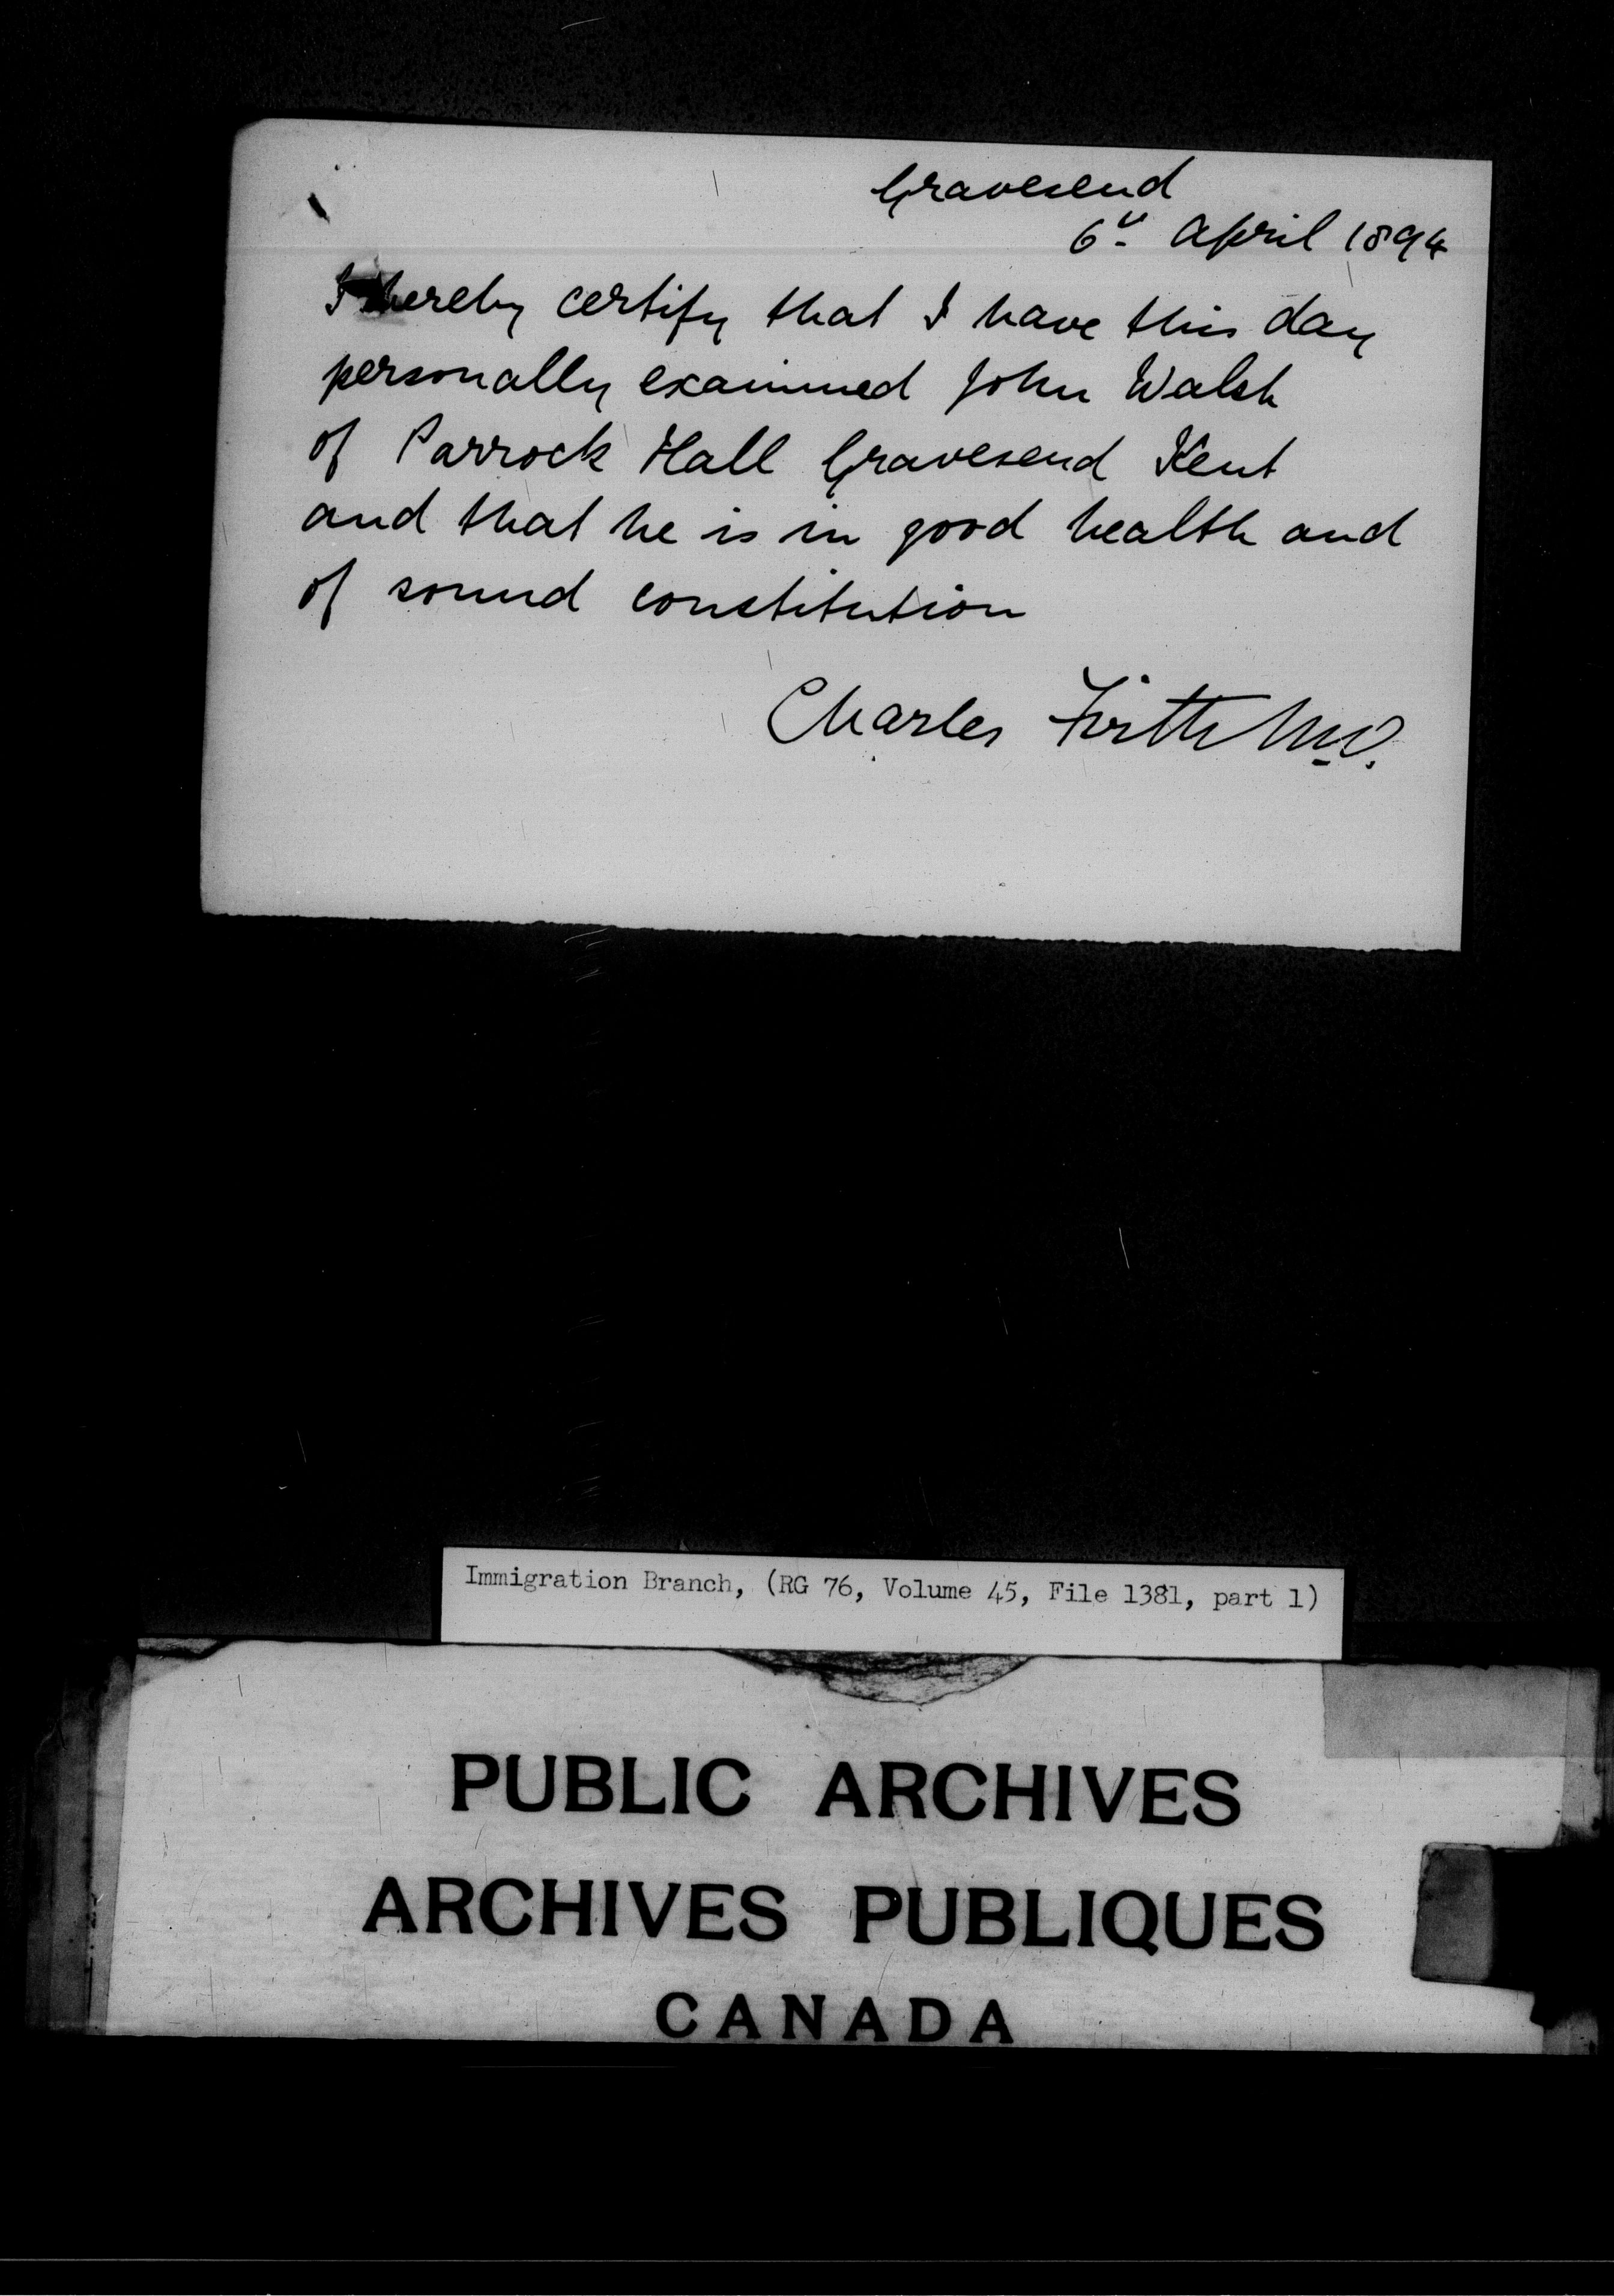 Gravesend
6th April 1894
I hereby certify that I have this day
personally examined John Walsh
of Parrock Hall Gravesend Kent
and that he is in good health and
of sound constitution
Charles Firth M.D.
Immigration Branch, (RG 76, Volume 45, File 1381, part 1)
PUBLIC ARCHIVES
ARCHIVES PUBLIQUES
CANADA